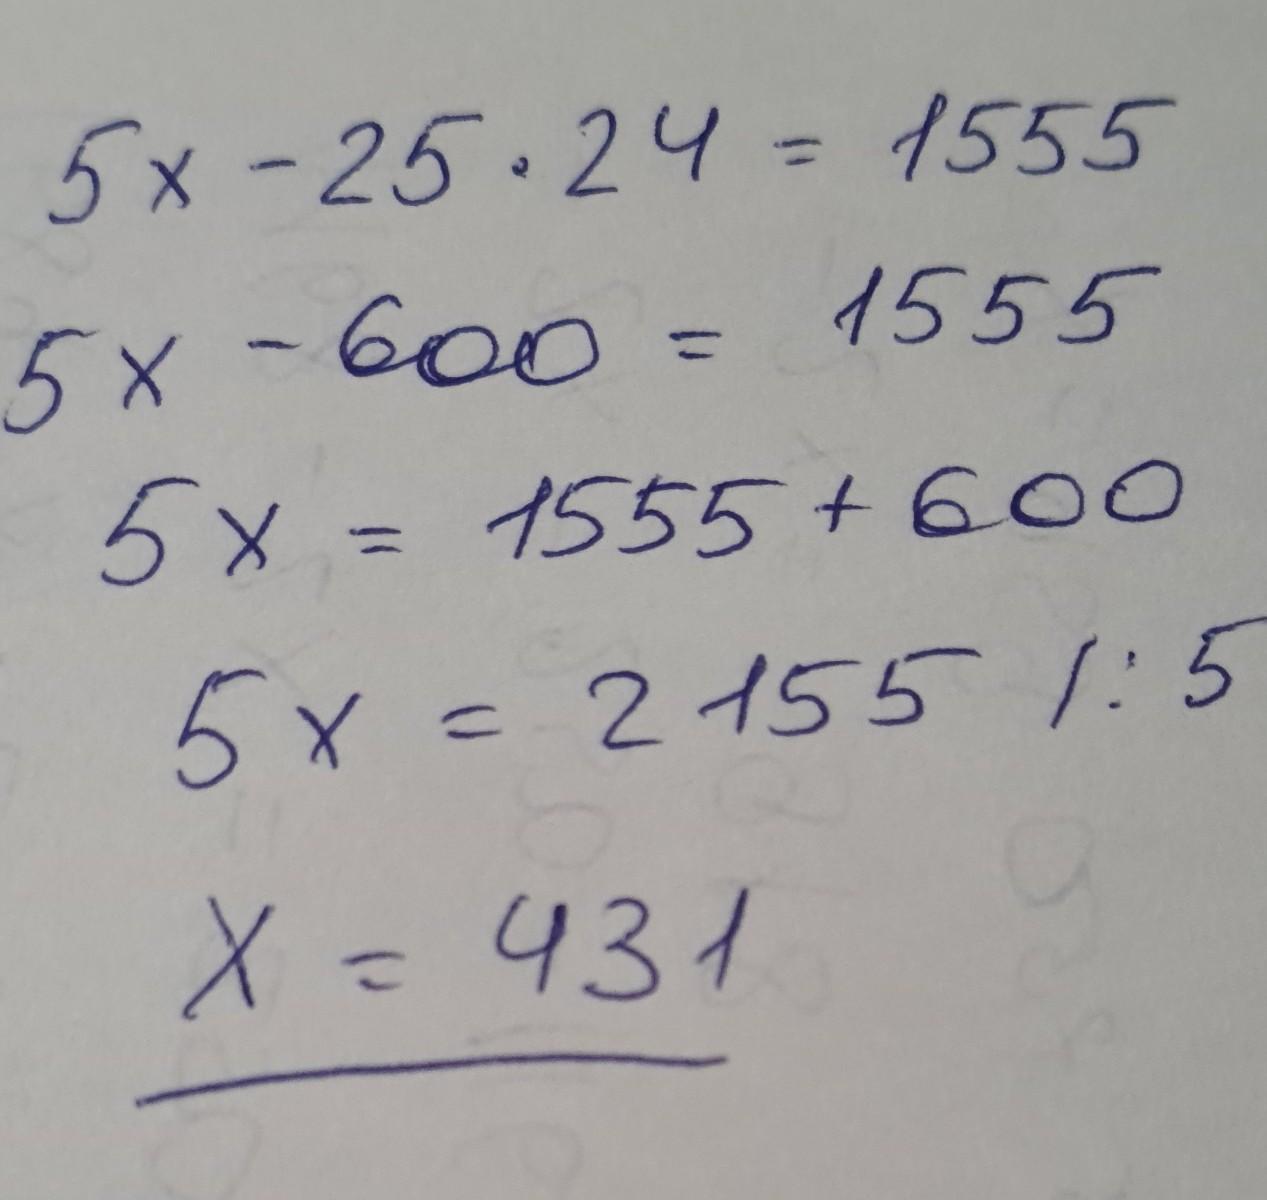 5x - 25 · 24 = 1555
5x - 600 = 1555
5x = 1555 + 600
5x = 2155 /: 5
x = 431